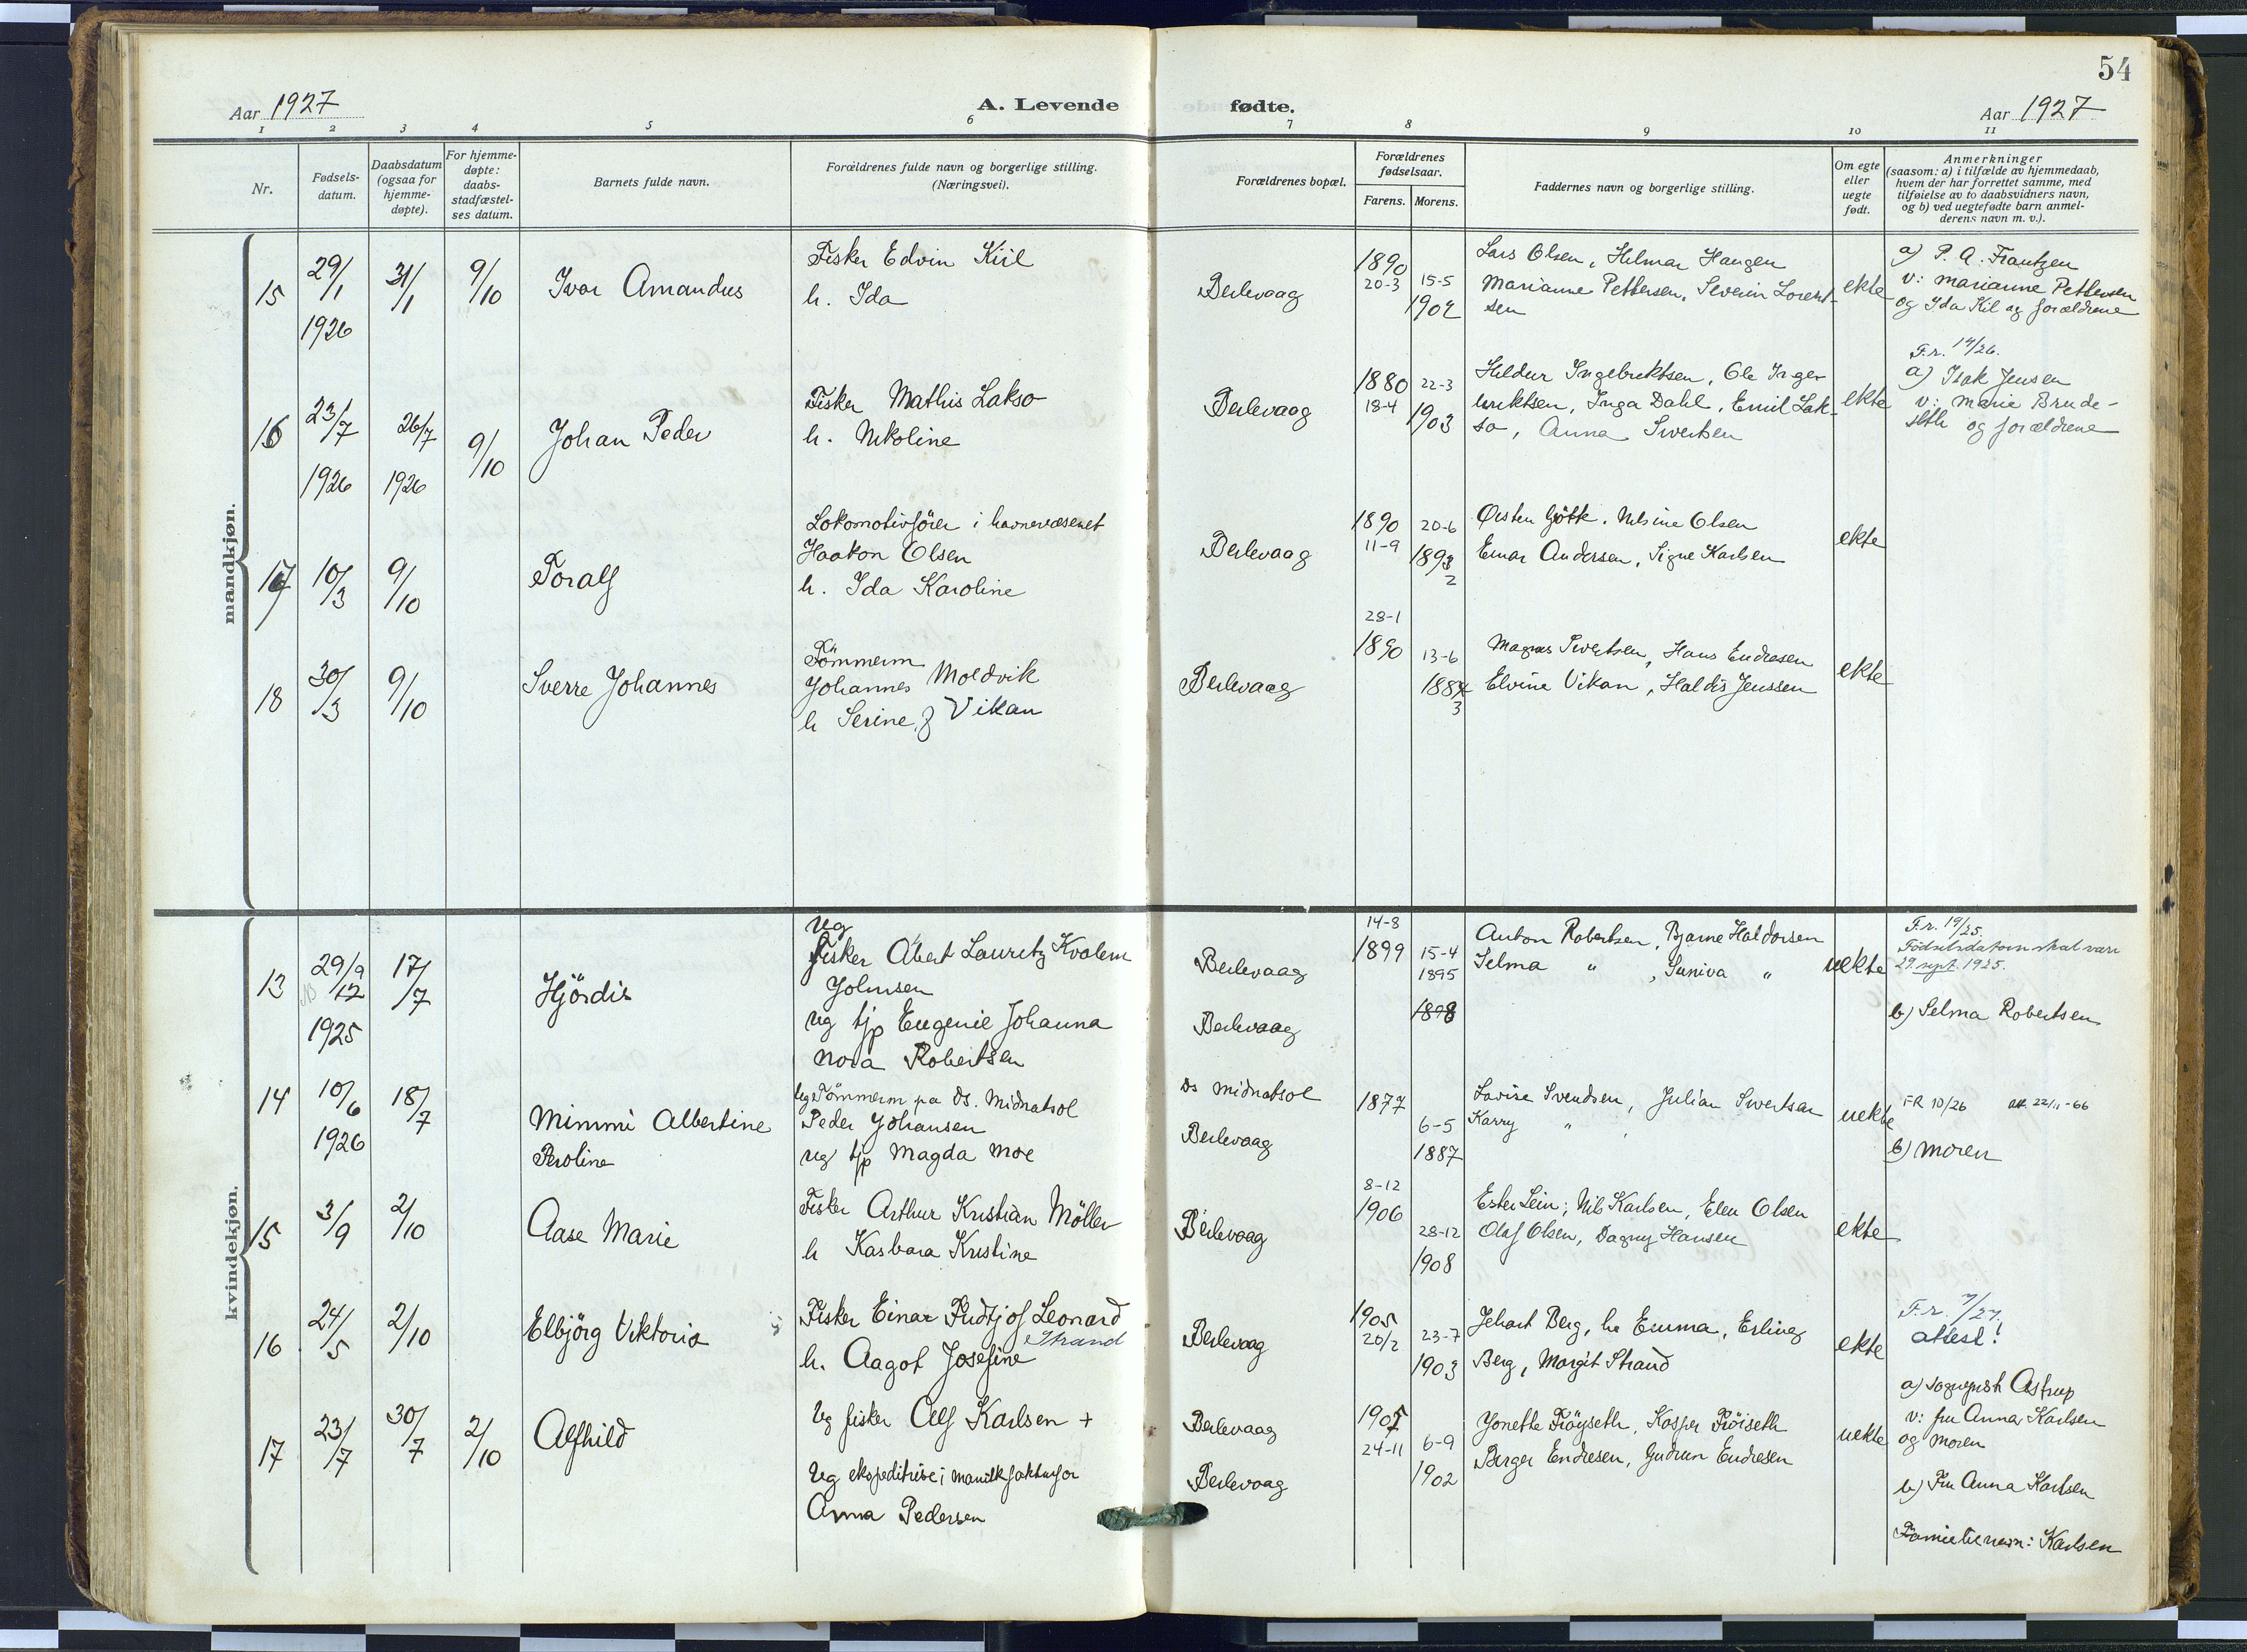 54
Aar 1927
A. Levende
fødte.
Aar 1927
1 2 3 4 5 6 7 8 9 10 11
Nr.
Fødsels-
datum.
Daabsdatum
(ogsaa for
hjemme-
døpte).
For hjemme-
døpte:
daabs-
stadfæstel-
ses datum.
Barnets fulde navn.
Forældrenes fulde navn og borgerlige stilling.
(Næringsvei).
Forældrenes bopæl.
Forældrenes
fødselsaar.
Farens. Morens.
Faddernes navn og borgerlige stilling.
Om egte
eller
uegte
født.
Anmerkninger
(saasom: a) i tilfælde av hjemmedaab,
hvem der har forrettet samme, med
tilføielse av to daabsvidners navn,
og b) ved uegtefødte barn anmel-
derens navn m. v.).
mandkjøn.
15
29/1
1926
31/1
9/10
Ivar Amandus
Fisker Edvin Kiil
h. Ida
Berlevaag
1890
20-3
15-5
1902
Lars Olsen, Hilmar Haugen
Marianne Pettersen, Severin Lorent-
sen
ekte
a) P. A. Frantzen
v: Marianne Pettersen
og Ida Kil og forældrene
16
23/7
1926
26/7
1926
9/10
Johan Peder
Fisker Mathis Lakso
h. Nikoline
Berlevaag
1880
18-4
22-3
1903
Hildur Ingebriktsen, Ole Inge-
briktsen, Inga Dahl, Emil Lak-
so, Anna Sivertsen
ekte
F.r. 14/26.
a) Isak Jensen
v: Marie Brude-
seth og forældrene
17
10/3
9/10
Toralf
Lokomotivfører i havnevæsenet
Haakon Olsen
h. Ida Karoline
Berlevaag
1890
11-9
20-6
1893
2
Ørsten Götk, Nilsine Olsen
Einar Andersen, Signe Karlsen
ekte
18
30/3
9/10
Sverre Johannes
Tömmerm
Johannes Moldvik
h Serine, f Vikan
Berlevaag
28-1
1890
13-6
1884
3
Magnus Sivertsen, Hans Endresen
Elvine Vikan, Haldis Jenssen
ekte
kvindekjøn.
13
29/9
12
1925
17/7
Hjördis
Ug
Fisker Albert Lauritz Kvalem
Johnsen
ug tjp Eugenie Johanna
Nora Robertsen
Berlevaag
Berlevaag
14-8
1899
15-4
1895
1898
Anton Robertsen, Bjarne Haldorsen
Selma " , Suniva "
uekte
F.r. 19/25.
Födselsdatoen skal være
29. sept. 1925.
b) Selma Robertsen
14
10/6
1926
18/7
Mimmi Albertine
Peroline
Ug Tömmerm paa Ds. Midnatsol
Peder Johansen
ug tjp Magda Moe
Ds Midnatsol
Berlevaag
1877
6-5
1887
Lovise Svendsen, Julian Sivertsen
Karry "
uekte
FR 10/26 att 22/11-66
b) moren
15
3/9
2/10
Aase Marie
Fisker Arthur Kristian Möller
h Kasbara Kristine
Berlevaag
8-12
1906
28-12
1908
Ester Lein; Nils Karlsen, Elen Olsen
Olaf Olsen, Dagny Hansen
ekte
16
24/5
2/10
Elbjörg Viktoria
Fisker Einar Fridtjof Leonard
Strand
h. Aagot Josefine
Berlevaag
1905
20/2
23-7
1903
Jehart Berg, h. Emma, Erling
Berg, Margit Strand
ekte
F.r. 7/27.
attest!
17
23/7
30/7
2/10
Alfhild
Ug fisker Alf Karlsen +
Ug ekspeditrise i
Anna Pedersen
Berlevaag
Berlevaag
1905
24-11
6-9
1902
Jonette Fröyseth, Kasper Fröiseth
Birger Endresen, Gudrun Endresen
uekte
a) sogneprest Astrup
v: fru Anna Karlsen
og moren
b) Fru Anna Karlsen
Familienavn: Karlsen